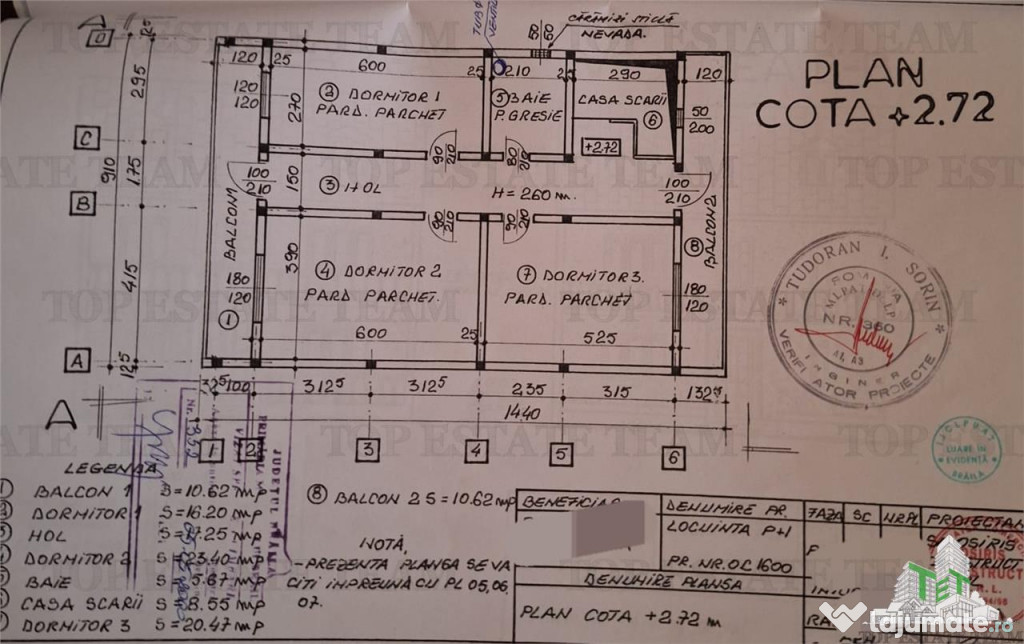 TOP ESTATE TEAM
PLAN
COTA +2.72
CĂRĂMIZI STICLĂ
NEVADA.
120
25
600
25
210
25
290
120
② DORMITOR 1
PARD. PARCHET
⑤ BAIE
P. GRESIE
CASA SCĂRII
⑥
+2.72
③ HOL
H = 260 m.
BALCON 1
①
BALCON 2
⑧
④ DORMITOR 2
PARD PARCHET.
⑦ DORMITOR 3.
PARD. PARCHET
120
120
100
210
180
120
90
210
80
210
90
210
80
210
50
200
100
210
180
120
270
150
390
600
25
525
295
175
910
415
125
D
C
B
A
A
A
32⁵
100
312⁵
312⁵
235
315
132⁵
1440
1
2
3
4
5
6
TUDORAN I. SORIN
NR. 360
A1, A3
INGINER
VERIFICATOR PROIECTE
LUARE IN
EVIDENȚĂ
BRĂILA
LEGENDA
BALCON 1 S = 10.62 mp
DORMITOR 1 S = 16.20 mp
HOL
DORMITOR 2
BAIE
CASA SCĂRII S = 8.55 mp
DORMITOR 3 S = 20.47 mp
⑧ BALCON 2 S = 10.62 mp
NOTĂ,
- PREZENTA PLANȘA SE VA
CITI ÎMPREUNĂ CU PL 05,06,
07.
DENUMIRE PR.
LOCUINTA P+1
PR. NR. OC 1600
DENUMIRE PLANSA
PLAN COTA +2.72 m
FAZA
SC
NR.PL
TET
lajumate.ro